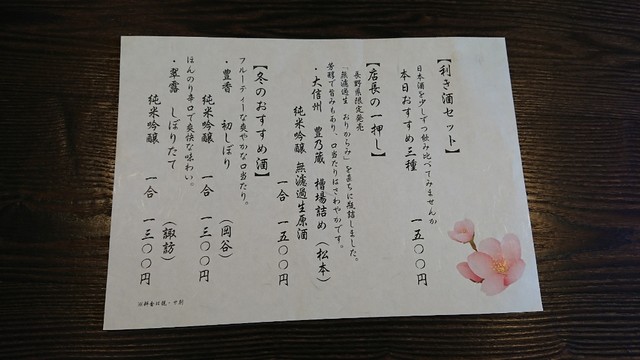 【利き酒セット】
日本酒を少しずつ飲み比べてみませんか
本日おすすめ三種 一五〇〇円
【店長の一押し】
長野県限定発売
「無濾過生 おりがらみ」を直ちに瓶詰しました。
芳醇で旨みもあり、口当たりはさわやかです。
・大信州 豊乃蔵 槽場詰め (松本)
純米吟醸 無濾過生原酒
一合 一五〇〇円
【冬のおすすめ酒】
フルーティーな爽やかな口当たり。
・豊香 初しぼり (岡谷)
純米吟醸 一合 一三〇〇円
ほんのり辛口で爽快な味わい。
・翠露 しぼりたて (諏訪)
純米吟醸 一合 一三〇〇円
※料金は税・サ別